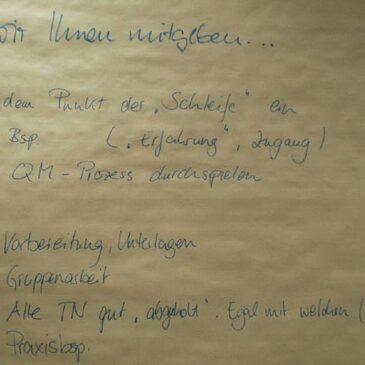 wir Ihnen mitgeben...
dem Punkt der „Schleife" ein
Bsp. („Erfahrung", Zugang)
QM-Prozess durchspielen
Vorbereitung, Unterlagen
Gruppenarbeit
Alle TN gut „abgeholt". Egal mit welchen (
Praxisbsp.